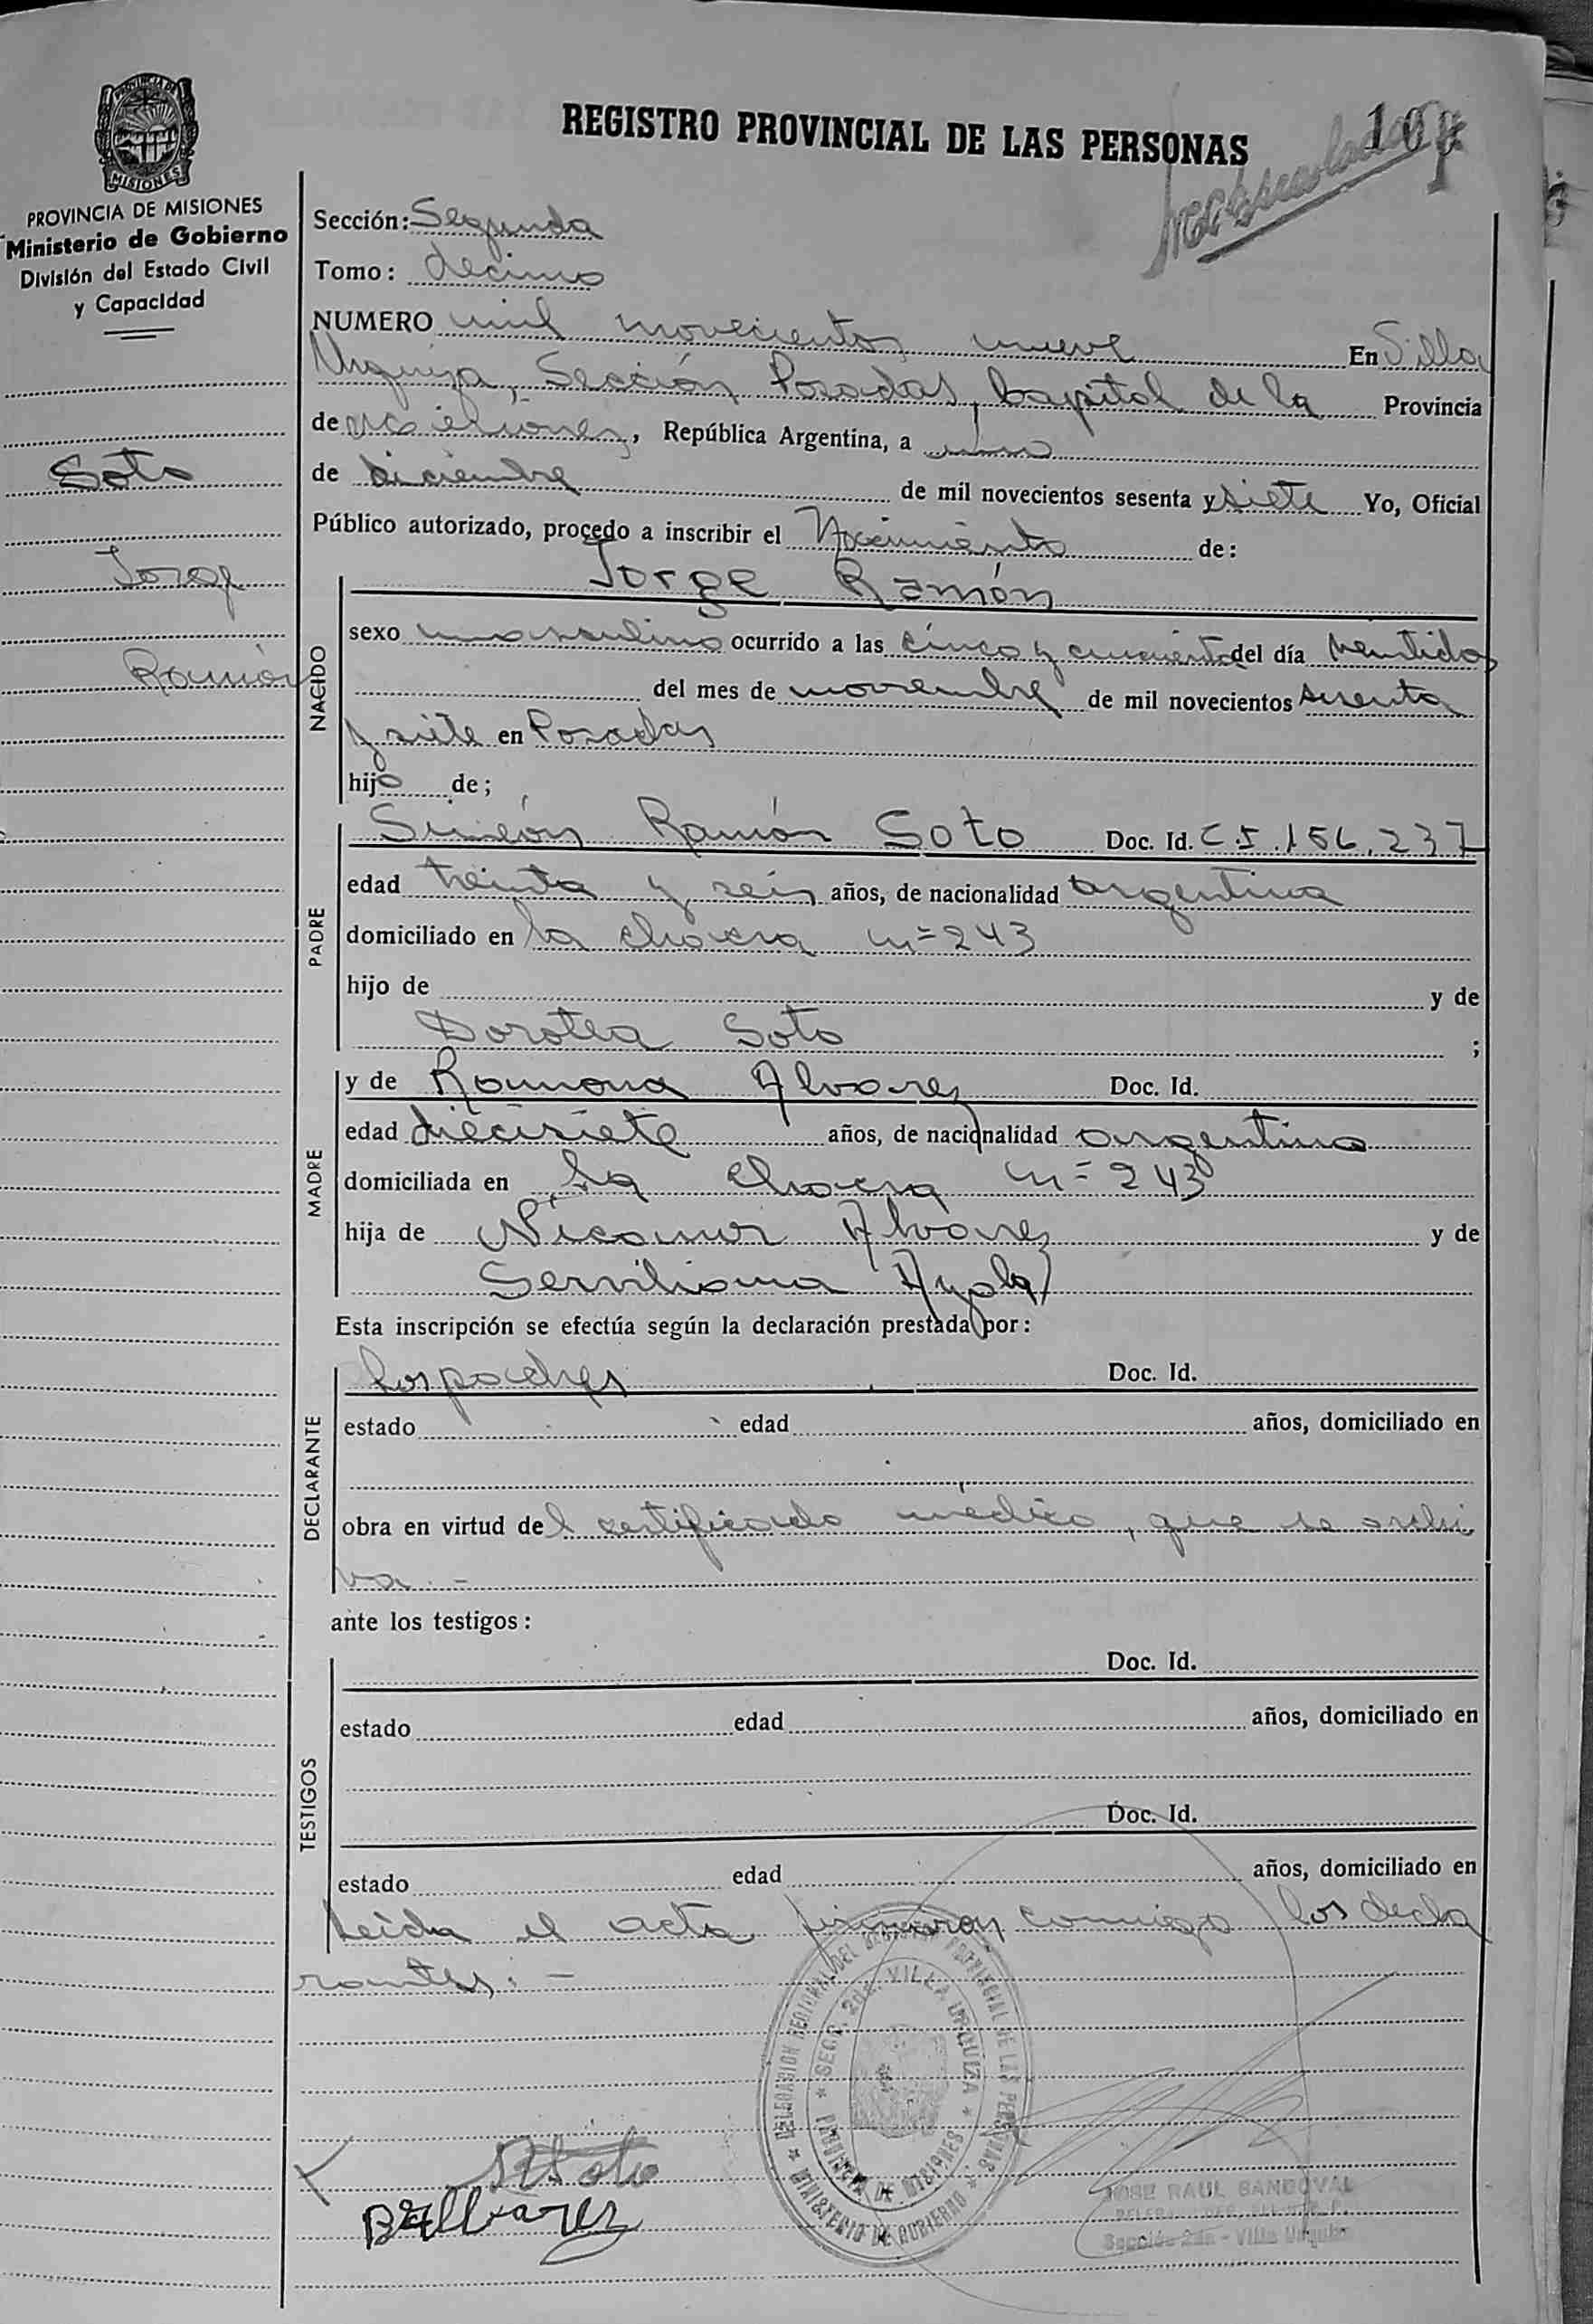 REGISTRO PROVINCIAL DE LAS PERSONAS
PROVINCIA DE
MISIONES
PROVINCIA DE MISIONES
Ministerio de Gobierno
División del Estado Civil
y Capacidad
Soto
Jorge
Ramón
Sección: Segunda
Tomo: decimo
NUMERO mil novecientos nueve En Villa
Urquiza, Sección Posadas, Capital de la Provincia
de Misiones, República Argentina, a uno
de diciembre de mil novecientos sesenta y siete Yo, Oficial
Público autorizado, procedo a inscribir el Nacimiento de:
NACIDO
Jorge Ramón
sexo masculino ocurrido a las cinco y cincuenta del día veintidos
del mes de noviembre de mil novecientos sesenta
y siete en Posadas
hijo de;
PADRE
Simeón Ramón Soto Doc. Id. C.I. 156.237
edad treinta y seis años, de nacionalidad argentina
domiciliado en la chacra nº 243
hijo de y de
Dorotea Soto ;
MADRE
y de Ramona Alvarez Doc. Id.
edad diecisiete años, de nacionalidad argentina
domiciliada en la chacra nº 243
hija de Nicanor Alvarez y de
Serviliana Ayala
Esta inscripción se efectúa según la declaración prestada por:
DECLARANTE
los padres Doc. Id.
estado edad años, domiciliado en
obra en virtud del certificado médico, que se archi
va.-
ante los testigos:
TESTIGOS
Doc. Id.
estado edad años, domiciliado en
Doc. Id.
estado edad años, domiciliado en
Leída el acta firmaron conmigo los decla
rantes.-
DELEGACION REGIONAL DEL REGISTRO PROVINCIAL DE LAS PERSONAS
MINISTERIO DE GOBIERNO
SECC. 2da. VILLA URQUIZA
PROVINCIA DE MISIONES
Soto
Alvarez
JOSE RAUL SANDOVAL
Sección 2da - Villa Urquiza